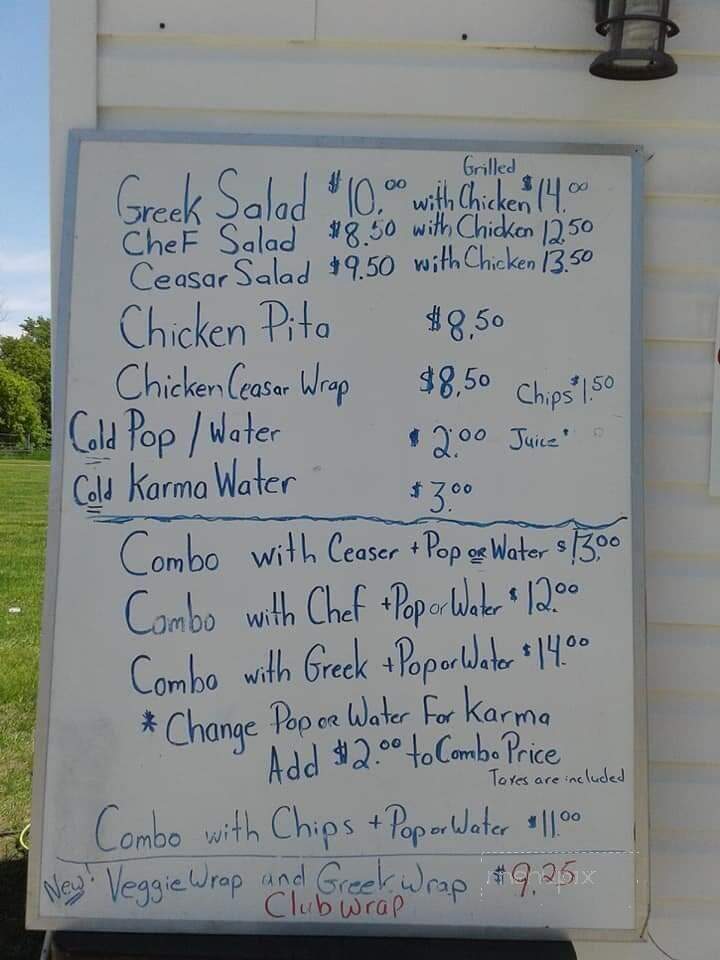 Greek Salad $10.00 with Grilled Chicken $14.00
CheF Salad $8.50 with Chicken 12.50
Ceasar Salad $9.50 with Chicken 13.50
Chicken Pita $8.50
Chicken Ceasar Wrap $8.50 Chips $1.50
Cold Pop / Water $2.00 Juice
Cold Karma Water $3.00
Combo with Ceaser + Pop or Water $13.00
Combo with Chef + Pop or Water $12.00
Combo with Greek + Pop or Water $14.00
* Change Pop or Water For Karma
Add $2.00 to Combo Price
Taxes are included
Combo with Chips + Pop or Water $11.00
New! Veggie Wrap and Greek Wrap $9.25
Club Wrap
menupix